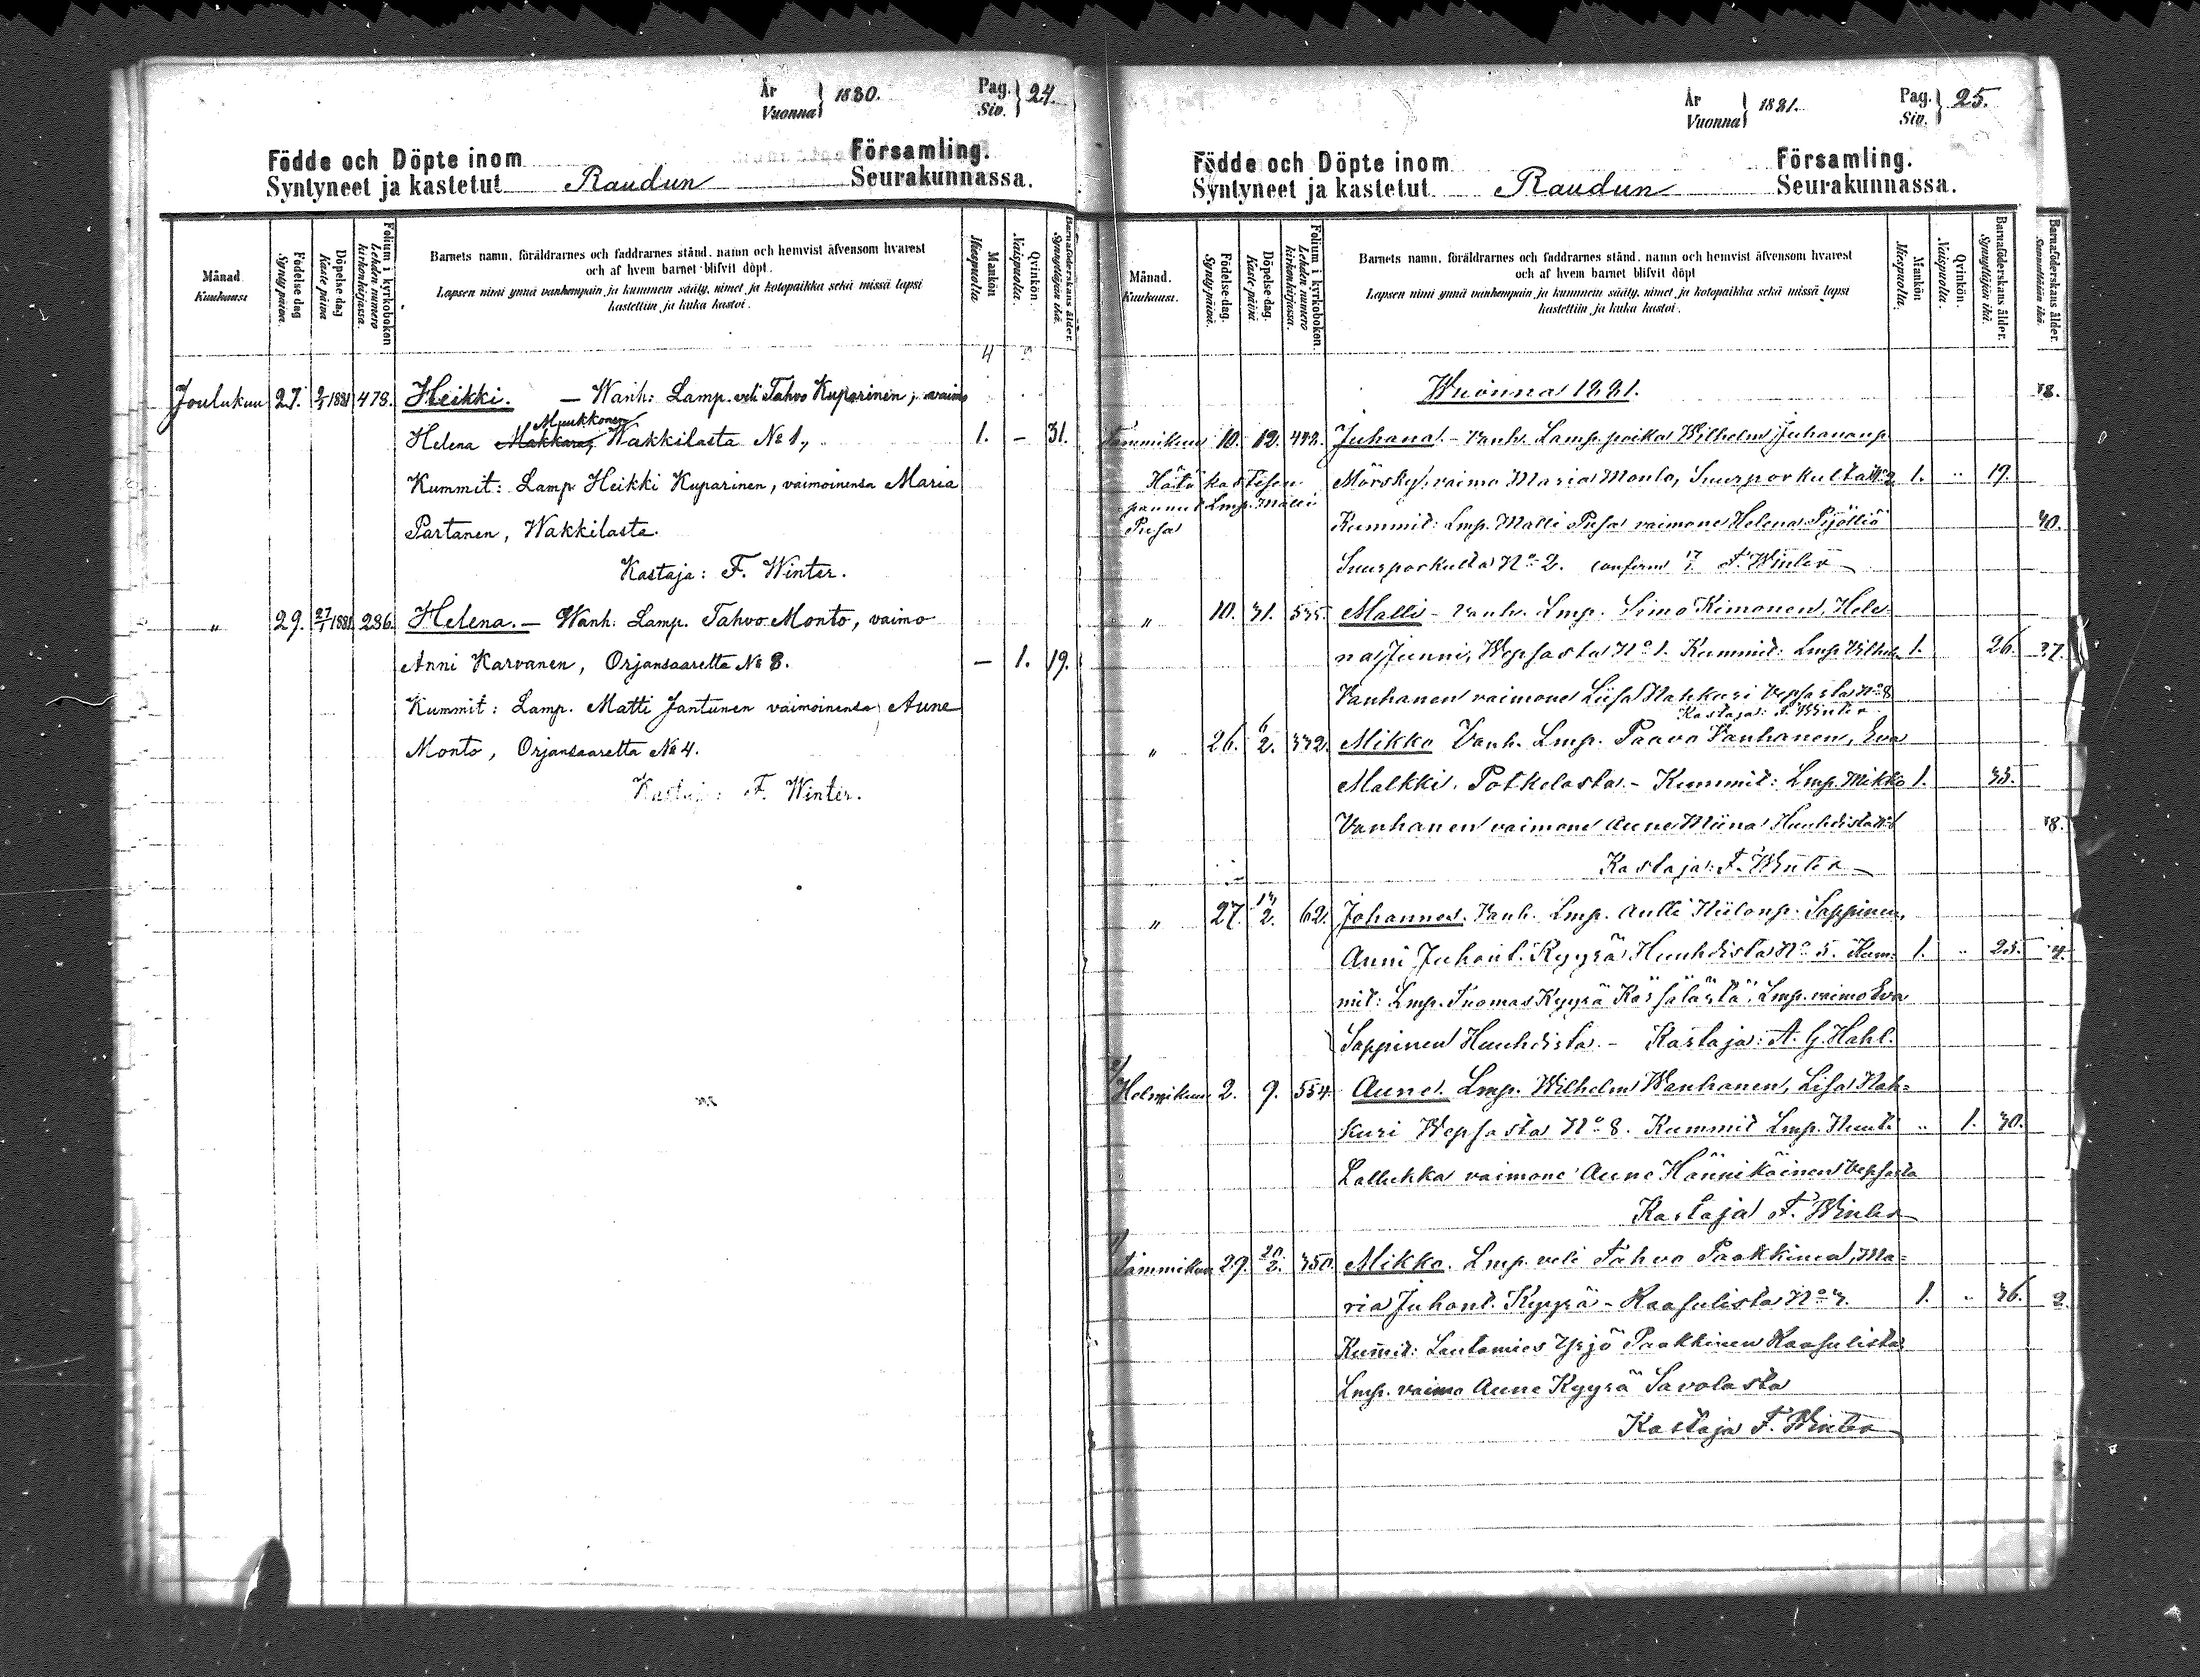 År
Vuonna } 1880. Pag.
Siv. } 24.
Födde och Döpte inom Församling.
Syntyneet ja kastetut Raudun Seurakunnassa.
Månad.
Kuukausi.
Födelse dag
Synty päivä.
Döpelse dag
Kaste päivä
Folium i kyrkoboken
Lehden numero
kirkonkirjassa.
Barnets namn, föräldrarnes och faddrarnes stånd, namn och hemvist äfvensom hvarest
och af hvem barnet blifvit döpt.
Lapsen nimi ynnä vanhempain ja kummein sääty, nimet ja kotopaikka sekä missä lapsi
kastettiin ja kuka kastoi.
Mankön
Miespuolta.
Qvinkön.
Naispuolta.
Barnaföderskans ålder.
Synnyttäjän ikä.
4
Joulukuu 27. 2/1 1881 478. Heikki. — Wanh: Lamp. veli Tahvo Kuparinen, vaimo
Muukkonen
Helena Makkara, Wakkilasta № 1., 1. – 31.
Kummit: Lamp Heikki Kuparinen, vaimoinensa Maria
Partanen, Wakkilasta.
Kastaja: F. Winter.
" 29. 27/1 1881 286. Helena. — Wanh: Lamp. Tahvo Monto, vaimo
Anni Karvanen, Orjansaaretta № 8. — 1. 19.
Kummit: Lamp. Matti Jantunen vaimoinensa Aune
Monto, Orjansaaretta № 4.
Kastaja: F. Winter.
År
Vuonna } 1881. Pag.
Siv. } 25.
Födde och Döpte inom Församling.
Syntyneet ja kastetut Raudun Seurakunnassa.
Månad.
Kuukausi.
Födelse-dag.
Synty päivä.
Döpelse dag.
Kaste päivä
Folium i kyrkoboken.
Lehden numero
kirkonkirjassa.
Barnets namn, föräldrarnes och faddrarnes stånd, namn och hemvist äfvensom hvarest
och af hvem barnet blifvit döpt
Lapsen nimi ynnä vanhempain ja kummein sääty, nimet ja kotopaikka sekä missä lapsi
kastettiin ja kuka kastoi.
Mankön
Miespuolta.
Qvinkön.
Naispuolta.
Barnaföderskans ålder.
Synnyttäjän ikä.
Barnaföderskans ålder.
Wuonna 1881.
Tammikuu 10. 12. Juhana. – Vanh. Lamp. poika Wilhelm Juhananp.
Hätäkasteen Mörsky, vaimo Maria Monto, Suurporkulta № 2 1. " 19.
pannut Lmp. Matti
Pusa Kummit: Lmp. Matti Pusa vaimone Helena Pyöttiö 40.
Suurporkulta No 2. confirm 17/1 F. Winter
" 10. 31. 535. Matti – Vanh. Lmp. Simo Kimonen, Hele-
na Junni, Wepsasta No 1. Kummit: Lmp. Vilhelm 1. 26. 27.
Vanhanen vaimone Liisa Nahkuri Vepsasta No 8
Kastaja: F. Winter
" 26. 6/2. 332. Mikko Vanh. Lmp. Paavo Vanhanen, Eva
Malkki, Potkelasta. – Kummit: Lmp. Mikko 1. 33.
Vanhanen vaimone Aune Miina Huuhdista
Kastaja: F. Winter
" 27. 62. Johannes. Vanh. Lmp. Antti Niilonp. Sappinen,
Anni Juhont. Kyyrä Huuhdista No 5. Kum- 1. " 25.
mit: Lmp. Tuomas Kyyrä Kärsälästä, Lmp. vaimo Eva
Sappinen Huuhdista. – Kastaja: A. G. Hahl.
Helmikuu 2. 9. 554. Aune. Lmp. Wilhelm Wanhanen, Lisa Nah-
kuri Wepsasta No 8. Kummit Lmp. Nuuti " 1. 30.
Lallukka vaimone Aune Hännikäinen Vepsasta
Kastaja F. Winter
Tammikuu 29. 20/2. 350. Mikko. Lmp. veli Tahvo Paakkinen, Ma-
ria Juhont. Kyyrä – Raasulista No 3. 1. " 36.
Kummit: Lautamies Yrjö Paakkinen Raasulista
Lmp. vaimo Aune Kyyrä Savolasta
Kastaja F. Winter